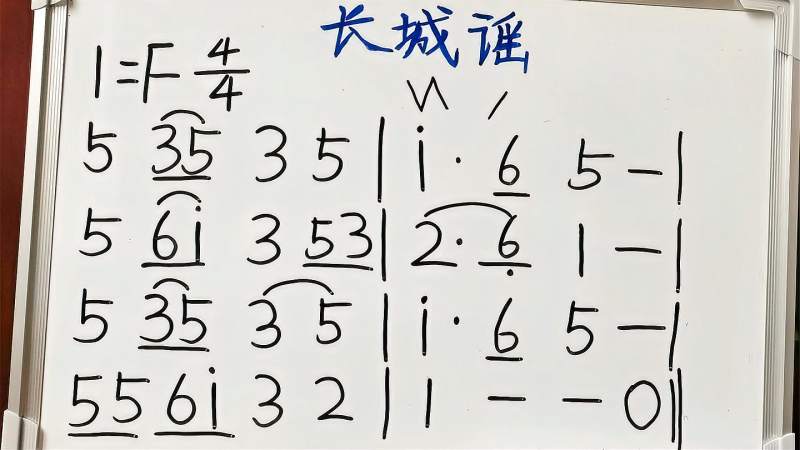 长城谣
1=F 4/4
5 35 3 5 | i · 6 5 - |
5 6i 3 53 | 2 · 6 1 - |
5 35 3 5 | i · 6 5 - |
55 6i 3 2 | 1 - - 0 ‖